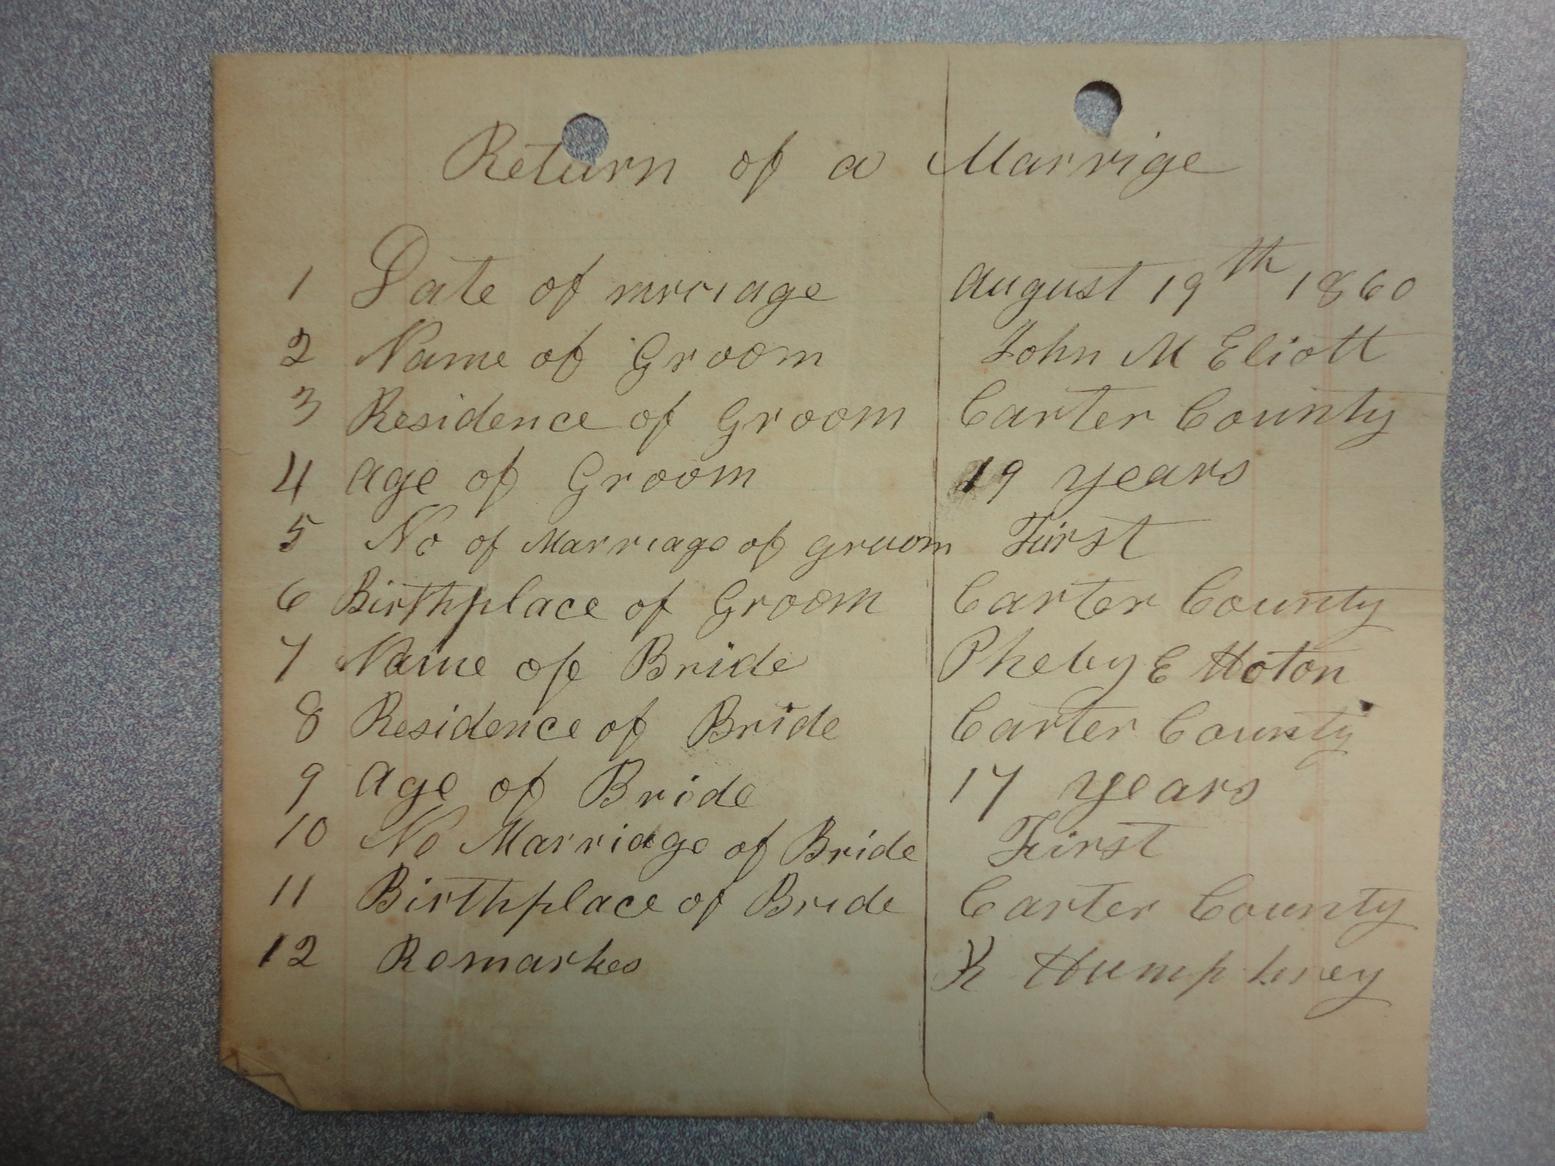 Return of a Marrige
1 Date of mrriage August 19th 1860
2 Name of Groom John M Eliott
3 Residence of Groom Carter County
4 Age of Groom 19 years
5 No of Marriage of groom First
6 Birthplace of Groom Carter County
7 Name of Bride Pheby E Hoton
8 Residence of Bride Carter County
9 Age of Bride 17 years
10 No Marriage of Bride First
11 Birthplace of Bride Carter County
12 Remarkes Humphrey